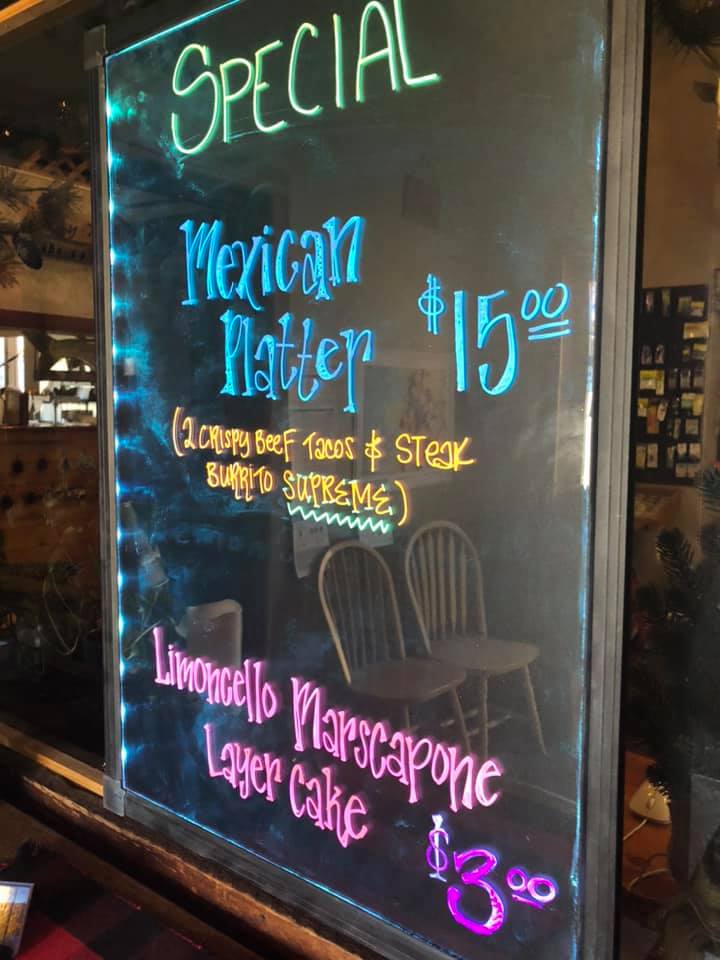 SPECIAL
Mexican
Platter $15.00
(2 CRISPY BEEF TACOS & STEAK
BURRITO SUPREME)
Limoncello Marscapone
Layer Cake
$3.00